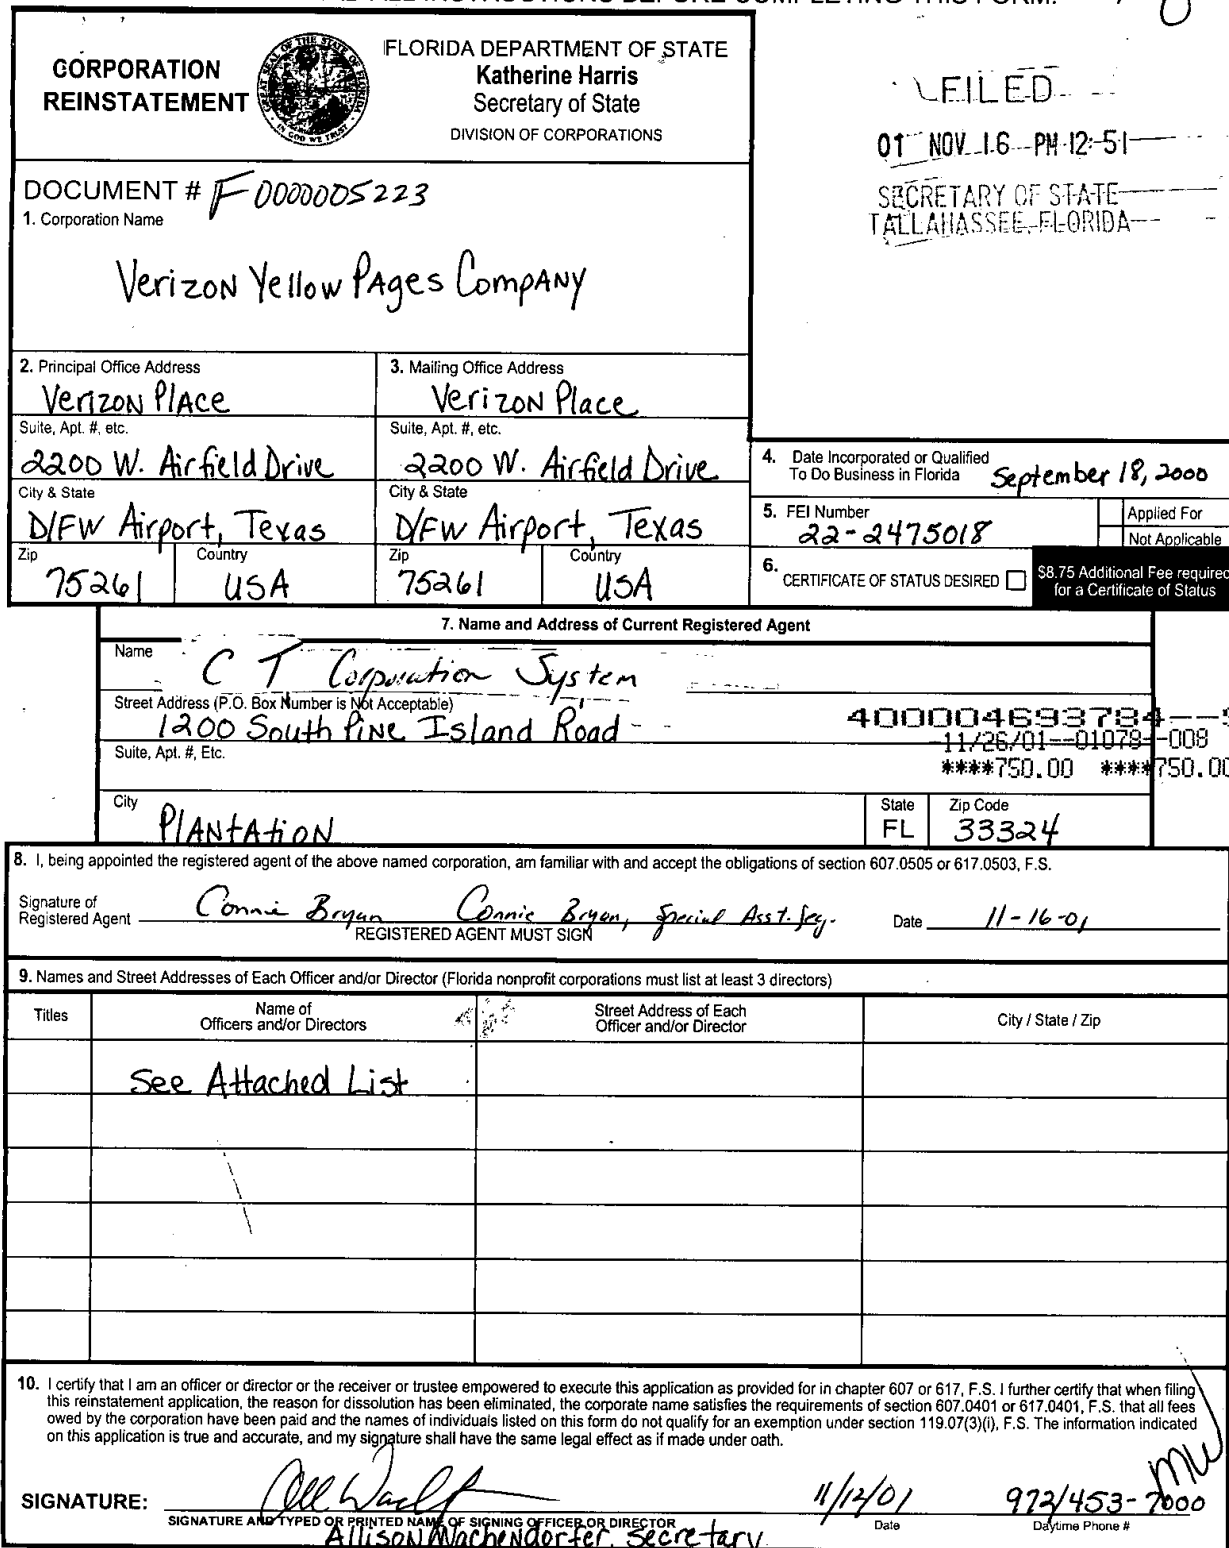 ALL INSTRUCTIONS BEFORE COMPLETING THIS FORM.
CORPORATION
REINSTATEMENT
GREAT SEAL OF THE STATE OF FLORIDA
IN GOD WE TRUST
FLORIDA DEPARTMENT OF STATE
Katherine Harris
Secretary of State
DIVISION OF CORPORATIONS
FILED
01 NOV 16 PM 12:51
SECRETARY OF STATE
TALLAHASSEE, FLORIDA
DOCUMENT # F0000005223
1. Corporation Name
Verizon Yellow Pages Company
2. Principal Office Address
Verizon Place
Suite, Apt. #, etc.
2200 W. Airfield Drive
City & State
D/FW Airport, Texas
Zip
75261
Country
USA
3. Mailing Office Address
Verizon Place
Suite, Apt. #, etc.
2200 W. Airfield Drive
City & State
D/FW Airport, Texas
Zip
75261
Country
USA
4. Date Incorporated or Qualified
To Do Business in Florida September 18, 2000
5. FEI Number
22-2475018
Applied For
Not Applicable
6. CERTIFICATE OF STATUS DESIRED
$8.75 Additional Fee required
for a Certificate of Status
7. Name and Address of Current Registered Agent
Name
C T Corporation System
Street Address (P.O. Box Number is Not Acceptable)
1200 South Pine Island Road
400004693784--
-11/26/01--01078--008
****750.00 ****750.00
Suite, Apt. #, Etc.
City
Plantation
State
FL
Zip Code
33324
8. I, being appointed the registered agent of the above named corporation, am familiar with and accept the obligations of section 607.0505 or 617.0503, F.S.
Signature of
Registered Agent Connie Bryan Connie Bryan, Special Asst. Scy. Date 11-16-01
REGISTERED AGENT MUST SIGN
9. Names and Street Addresses of Each Officer and/or Director (Florida nonprofit corporations must list at least 3 directors)
Titles
Name of
Officers and/or Directors
Street Address of Each
Officer and/or Director
City / State / Zip
See Attached List
10. I certify that I am an officer or director or the receiver or trustee empowered to execute this application as provided for in chapter 607 or 617, F.S. I further certify that when filing
this reinstatement application, the reason for dissolution has been eliminated, the corporate name satisfies the requirements of section 607.0401 or 617.0401, F.S. that all fees
owed by the corporation have been paid and the names of individuals listed on this form do not qualify for an exemption under section 119.07(3)(i), F.S. The information indicated
on this application is true and accurate, and my signature shall have the same legal effect as if made under oath.
MW
SIGNATURE: 11/12/01 972/453-7000
SIGNATURE AND TYPED OR PRINTED NAME OF SIGNING OFFICER OR DIRECTOR
Date
Daytime Phone #
Allison Wachendorfer, Secretary